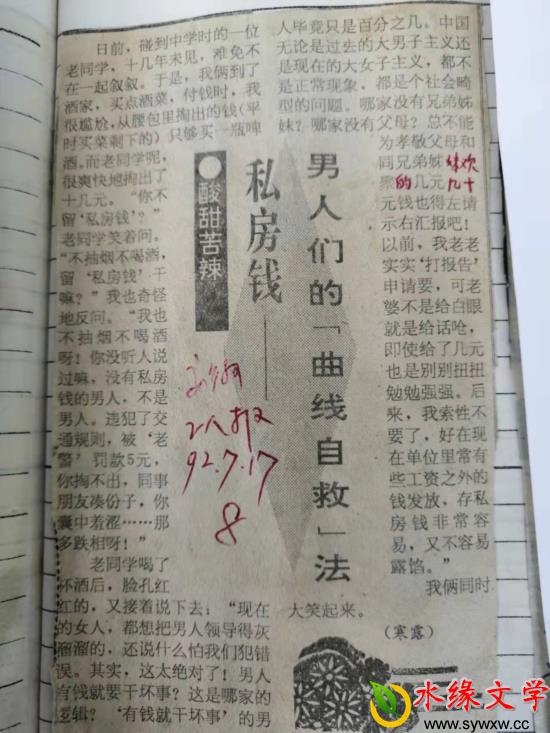 日前，碰到中学时的一位
老同学，十几年未见，难免不
在一起叙叙。于是，我俩到了
酒家，买点酒菜，付钱时，我
很尴尬，从腰包里掏出的钱（平
时买菜剩下的）只够买一瓶啤
酒。而老同学呢，
很爽快地掏出了
十几元。“你不
留‘私房钱’？”
老同学笑着问。
“不抽烟不喝酒，
留‘私房钱’干
嘛？”我也奇怪
地反问。“我也
不抽烟不喝酒
呀！你没听人说
过嘛，没有私房
钱的男人，不是
男人。违犯了交
通规则，被‘老
警’罚款5元，
你掏不出，同事
朋友凑份子，你
囊中羞涩……那
多跌相呀！”
老同学喝了
杯酒后，脸孔红
红的，又接着说下去：“现在
的女人，都想把男人领导得灰
溜溜的，还说什么怕我们犯错
误。其实，这太绝对了！男人
有钱就要干坏事？这是哪家的
逻辑？‘有钱就干坏事’的男
●酸甜苦辣
私房钱——
男人们的「曲线自救」法
92.7.17
8
人毕竟只是百分之几。中国
无论是过去的大男子主义还
是现在的大女子主义，都不
是正常现象，都是个社会畸
型的问题。哪家没有兄弟姊
妹？哪家没有父母？总不能
为孝敬父母和
同兄弟姊妹欢
聚的几元几十
元钱也得左请
示右汇报吧！
以前，我老老
实实‘打报告’
申请要，可老
婆不是给白眼
就是给话呛，
即使给了几元
也是别别扭扭
勉勉强强。后
来，我索性不
要了，好在现
在单位里常有
些工资之外的
钱发放，存私
房钱非常容
易，又不容易
露馅。”
我俩同时
大笑起来。
（寒露）
水缘文学
www.sywxw.com